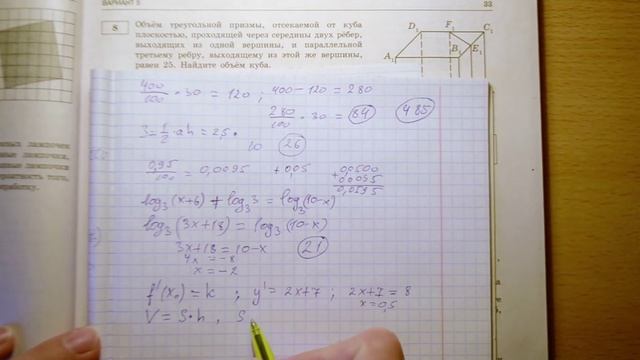 ВАРИАНТ 5
33
8
Объём треугольной призмы, отсекаемой от куба
плоскостью, проходящей через середины двух рёбер,
выходящих из одной вершины, и параллельной
третьему ребру, выходящему из этой же вершины,
равен 25. Найдите объём куба.
D₁ F₁ C₁
A₁ B₁ E₁
400/100 • 30 = 120 ; 400 - 120 = 280
280/100 • 30 = 84 485
S = 1/2 • ah = 2,5 •
10 26
0,95/100 = 0,0095 + 0,05
0,0500
+ 0,0095
0,0595
log₃(x+6) + log₃3 = log₃(10-x)
log₃(3x+18) = log₃(10-x)
3x+18 = 10-x 21
4x = -8
x = -2
f'(x₀) = k ; y' = 2x+7 ; 2x+7 = 8
x = 0,5
V = S•h , S